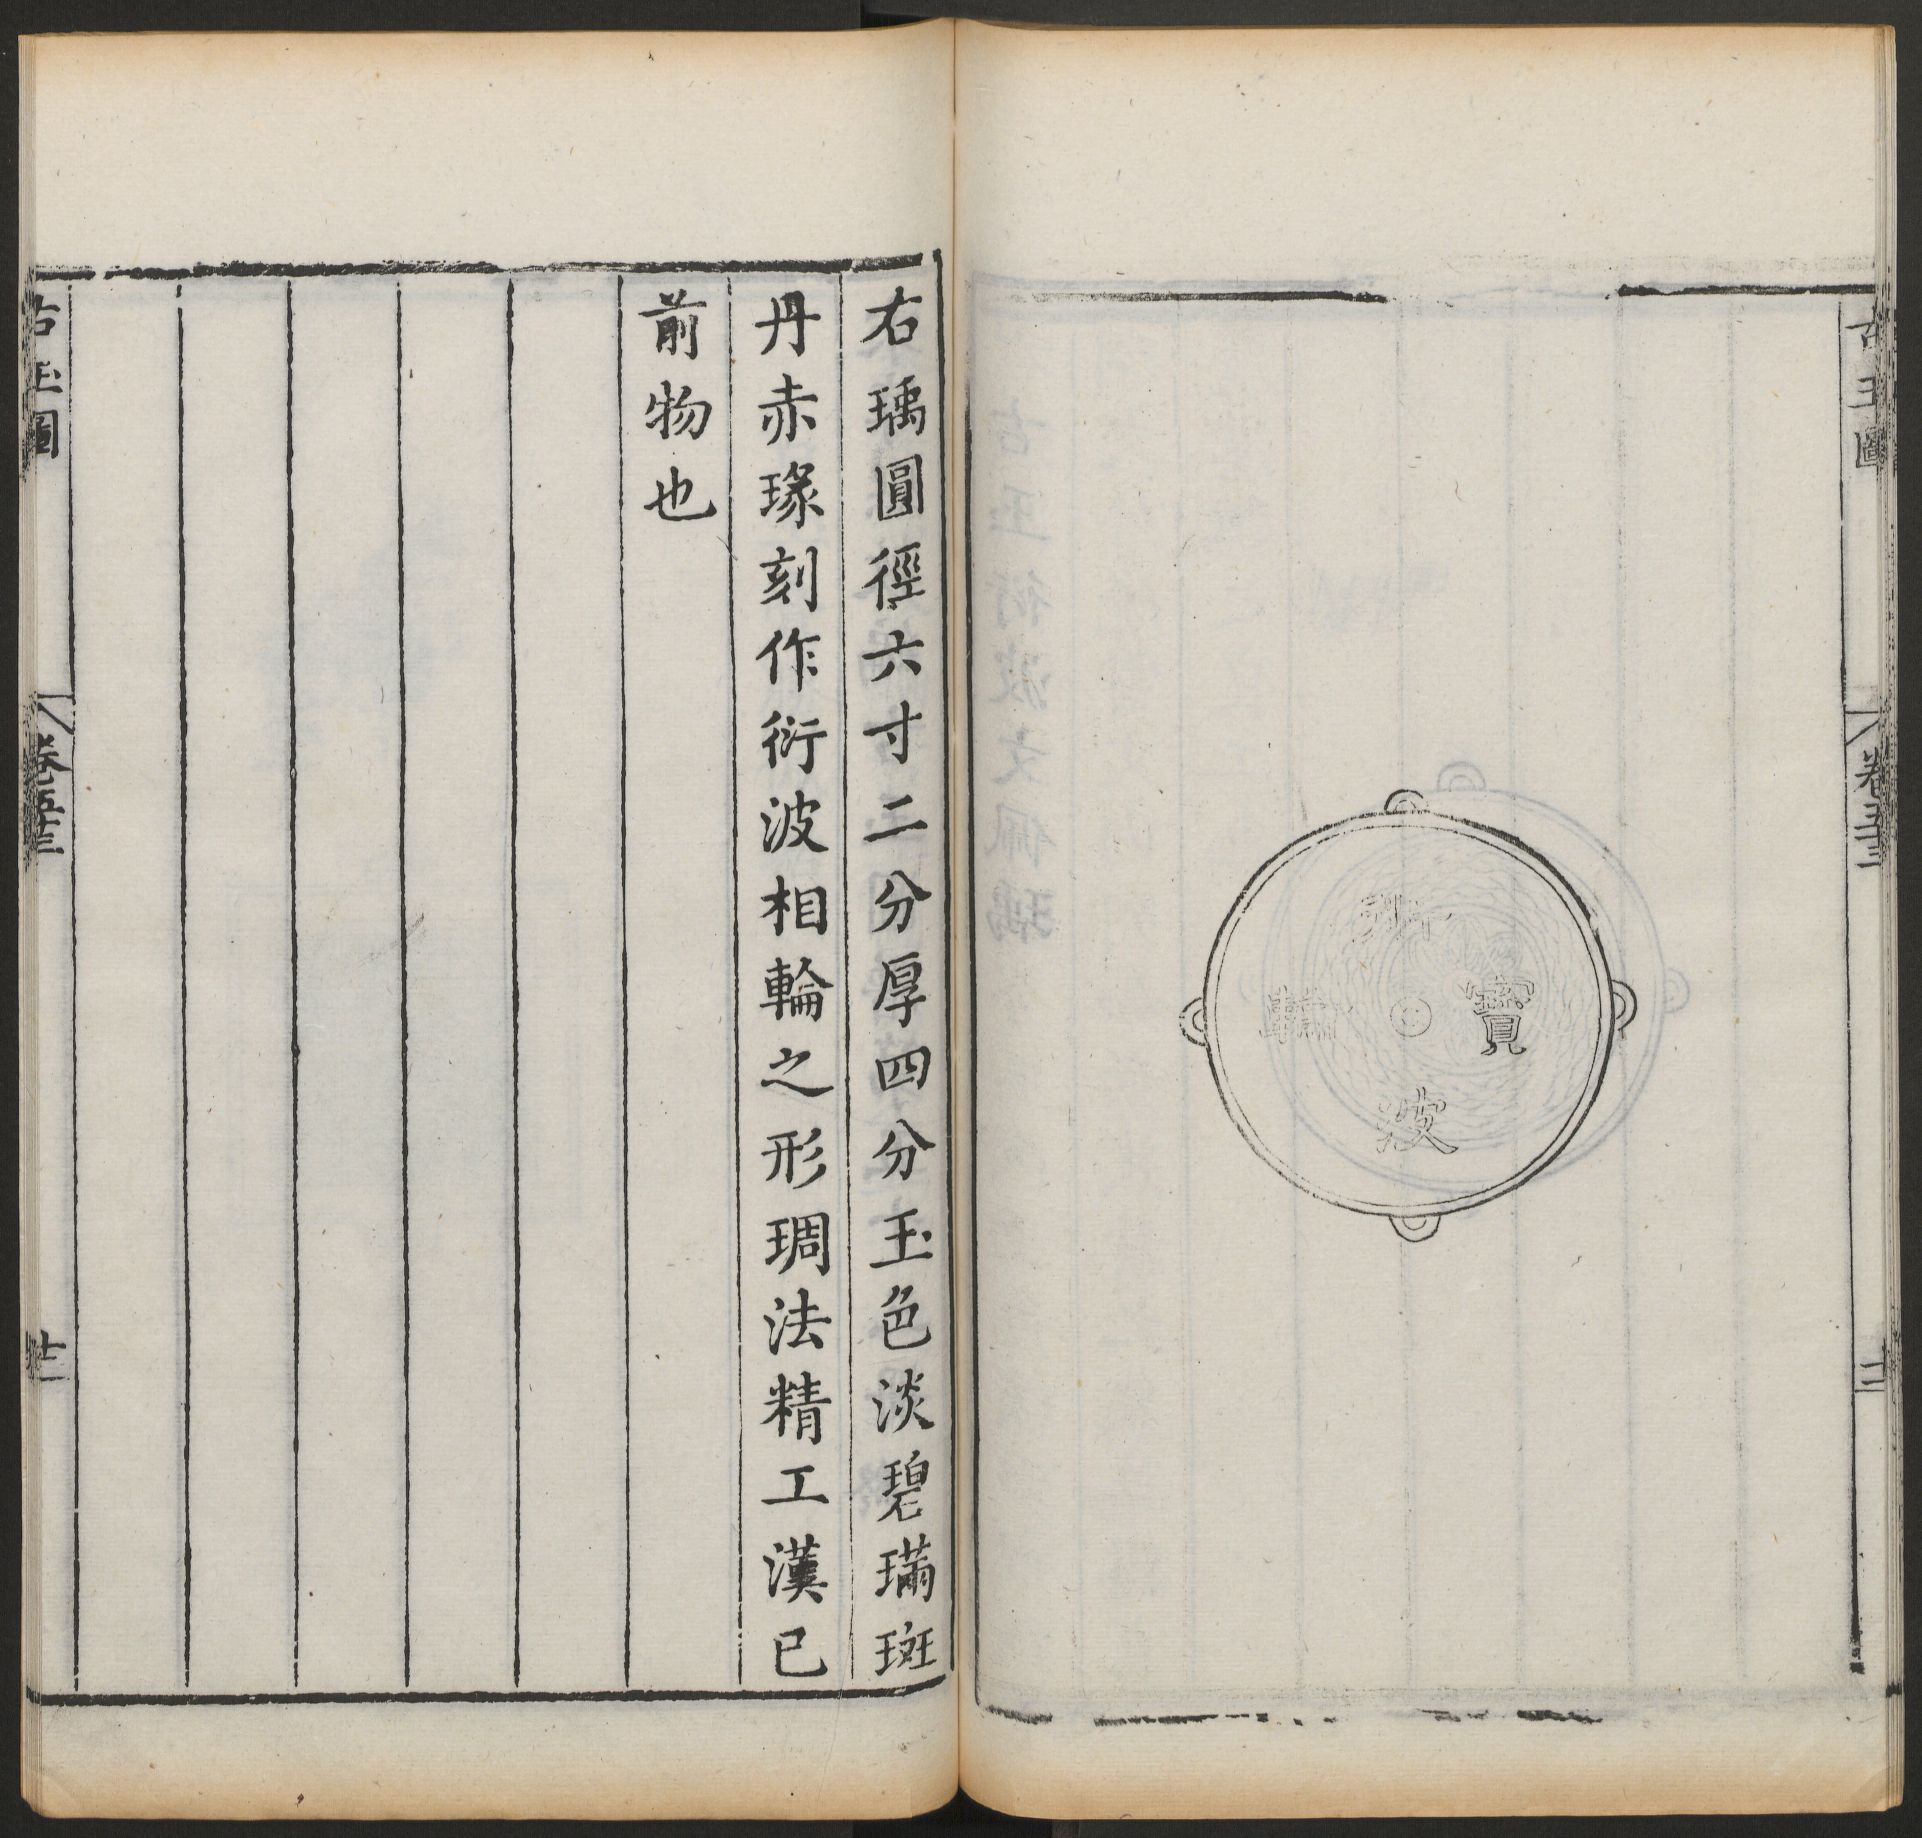 古玉圖
卷五十三
寶
波
輪
右瑀圓徑六寸二分厚四分玉色淡碧璊斑
丹赤瑑刻作衍波相輪之形琱法精工漢已
前物也
古玉圖
卷五十三